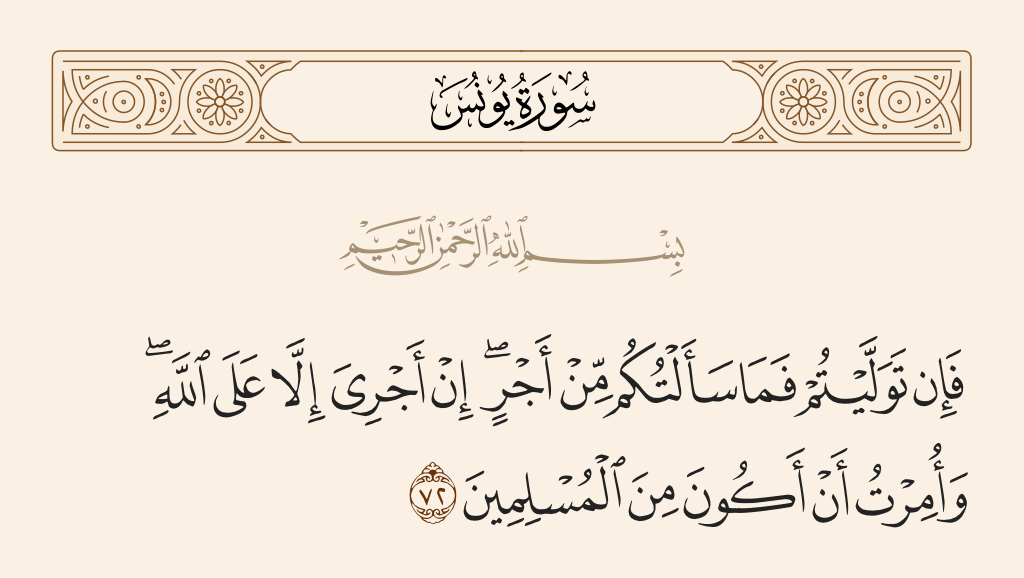 سُورَةُ يُونُسَ
بِسْمِ ٱللَّهِ ٱلرَّحْمَٰنِ ٱلرَّحِيمِ
فَإِن تَوَلَّيْتُمْ فَمَا سَأَلْتُكُم مِّنْ أَجْرٍ ۖ إِنْ أَجْرِىَ إِلَّا عَلَى ٱللَّهِ ۖ
وَأُمِرْتُ أَنْ أَكُونَ مِنَ ٱلْمُسْلِمِينَ ٧٢